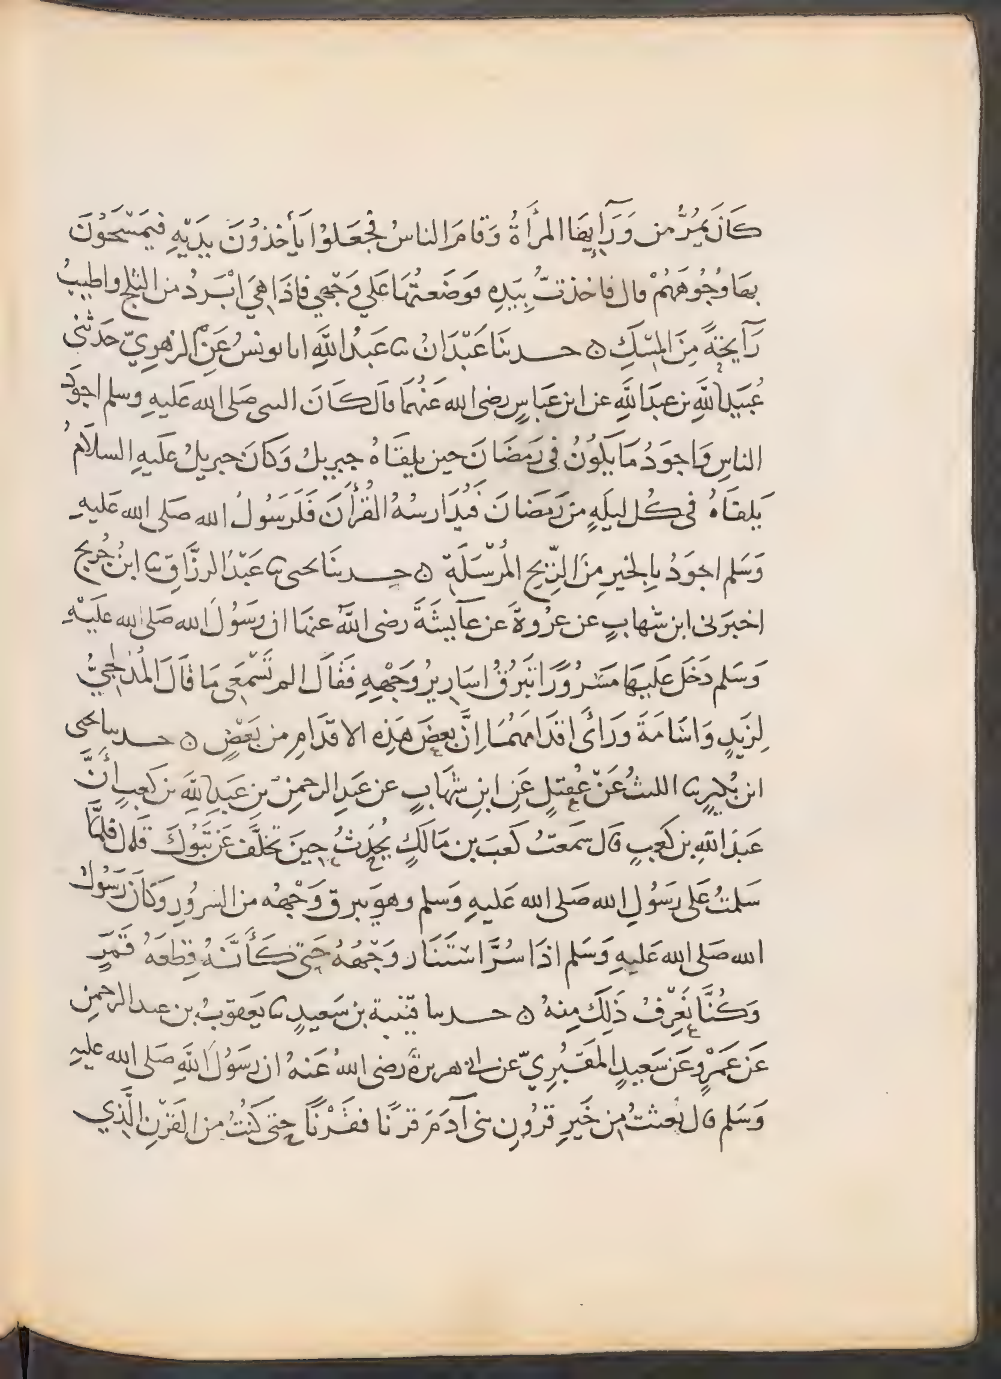 كَانَ يَمُرُّ من وَرَآيِهَا المرأَةُ وَقامَ الناسُ فجَعَلوُا يَأخذوُنَ بيَدَيْهِ فيَمْسَحُوْنَ
بهَا وُجُوهَهُمْ قال فاخذتُ بِيَدِه فوَضَعتُهَا عَلي وَجْهي فاذَا هيَ ابْرَدُ من الثلج واطيبُ
رَآيحَةً مِنَ المِسْكِ ۞ حدثنَا عَبْدَانُ ثنا عَبدُ اللَّهِ انا يونسُ عَنِ الزهرِيّ حَدثني
عُبَيدُ اللَّهِ بن عبدِ اللَّهِ عن ابن عَباسٍ رضى الله عَنْهُمَا قالَ كَانَ النبى صَلى الله عَليهِ وسلم اجوَدَ
الناسِ وَاجوَدُ مَا يَكوُنُ فى رَمَضَانَ حين يلقَاهُ جبريلُ وَكانَ جبريلُ عَليهِ السلَامُ
يَلقاهُ فى كُل ليلَهٍ من رَمَضانَ فَيُدَارسُهُ القُرأنَ فَلَرَسُولُ الله صَلى الله عَليهِ
وَسَلم اجوَدُ بِالخيرِ مِنَ الرِّيحِ المُرْسَلَةِ ۞ حدثنَا يحيى ثنا عَبْدُ الرزَّاقِ ثنا ابنُ جُريج
اخبرَنى ابن شهابٍ عن عرُوةَ عَن عآيشَةَ رَضى اللَّهُ عنهَا ان رسَوُلَ الله صَلى الله عَليْهِ
وَسَلم دَخَلَ عَليهَا مَسْرُوْرًا تَبرُقُ اسَاريرُ وَجْهِهِ فقَالَ الم تَسْمَعِى مَا قَالَ المُدْلجيُّ
لِزَيدٍ وَاسَامَةَ وَرَأَى اقدَامَهُمَا اِنَّ بعضَ هَذِه الاقدَامِ من بَعْضٍ ۞ حدثنا يحيى
ابن بُكَيرٍ ثنا الليثُ عَنْ عُقيلٍ عَنِ ابنِ شهَابٍ عن عَبدِ الرحمنِ بن عَبدِ اللَّهِ بن كَعبٍ أَنَّ
عَبدَ اللَّهِ بن كَعبٍ قالَ سَمَعتُ كَعبَ بن مَالكٍ يُحَدِثُ حِينَ تخلَّفَ عَن تَبُوكَ قَالَ فلمَّا
سَلمتُ عَلى رسَوُلِ الله صَلى الله عَليهِ وَسَلم وهوَ يبرق وَجْهُه من السُروُرِ وَكَانَ رَسوُلُ
الله صَلى الله عَليهِ وَسَلم اذَا سُرَّ اسْتنَار وَجْهُهُ حَتى كَأَنَّهُ قِطعَهُ قَمَرٍ
وَكُنَّا نَعْرِفُ ذَلِكَ مِنهُ ۞ حدثنا قتيبة بن سَعيدٍ ثنا يَعقوَبُ بن عبد الرحمن
عَن عَمْرٍو عَن سَعِيدٍ المَقبُرِيّ عن ابى هريرةَ رضى اللهُ عَنهُ ان رسَوُلَ اللَّهِ صَلى الله عليهِ
وَسَلم قال بُعثتُ مِن خَيرِ قرُونِ بنى آدَمَ قرنًا فقَرْنًا حتى كُنتُ من القَرْنِ الَّذي